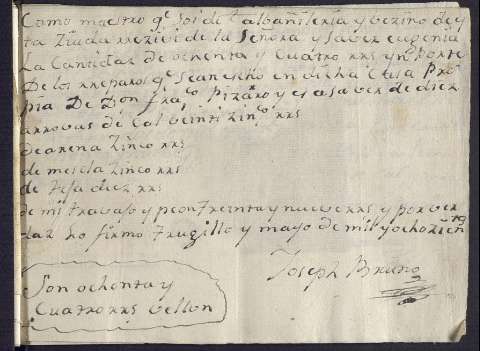 Como maestro qe soi de Calbañileria y bezino de
ta ziuda rrezivi de la Señora ysaver eugenia
La Cantidaz de ochenta y Cuatro rrs ynporte
De los rreparos qe sean echo en dicha Casa Pro
pia De Don franco pizarro y es a saver de diez
arrovas de Cal veinti zinco rrs
de arena zinco rrs
de mescla zinco rrs
de teja diez rrs
de mi travajo y peon treinta y nueve rrs y por ver
daz lo firmo truxillo y mayo de mil y ochozien
Joseph Bruno
Son ochenta y
Cuatro rrs vellon